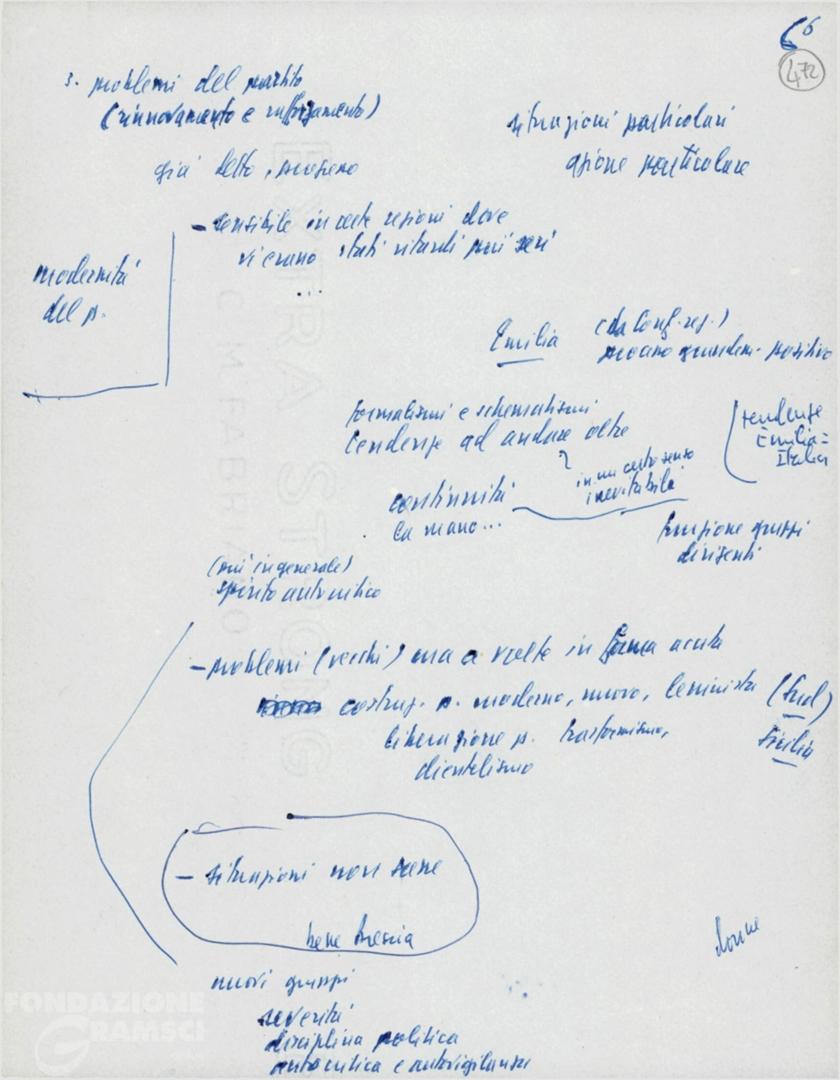 6
472
3. problemi del partito
(rinnovamento e rafforzamento)
situazioni particolari
azione particolare
già detto, progresso
- sensibile in certe regioni dove
vi erano stati ritardi più seri
...
modernità
del p.
Emilia (da Conf. reg.)
positivo
formalismi e schematismi
tendenze ad andare oltre
(tendenze
Emilia =
Italia
?
in un certo senso
inevitabili
continuità
La mano...
funzione gruppi
dirigenti
(più in generale)
spirito autocritico
- problemi (vecchi) ma a volte in forma acuta
costruz. p. moderno, nuovo, leninista (Sud)
liberazione p. trasformismo,
clientelismo
Sicilia
- situazioni non sane
bene Brescia
donne
nuovi gruppi
severità
disciplina politica
autocritica e autovigilanza
FONDAZIONE
GRAMSCI
EXTRA STRONG
C.M. FABRIANO